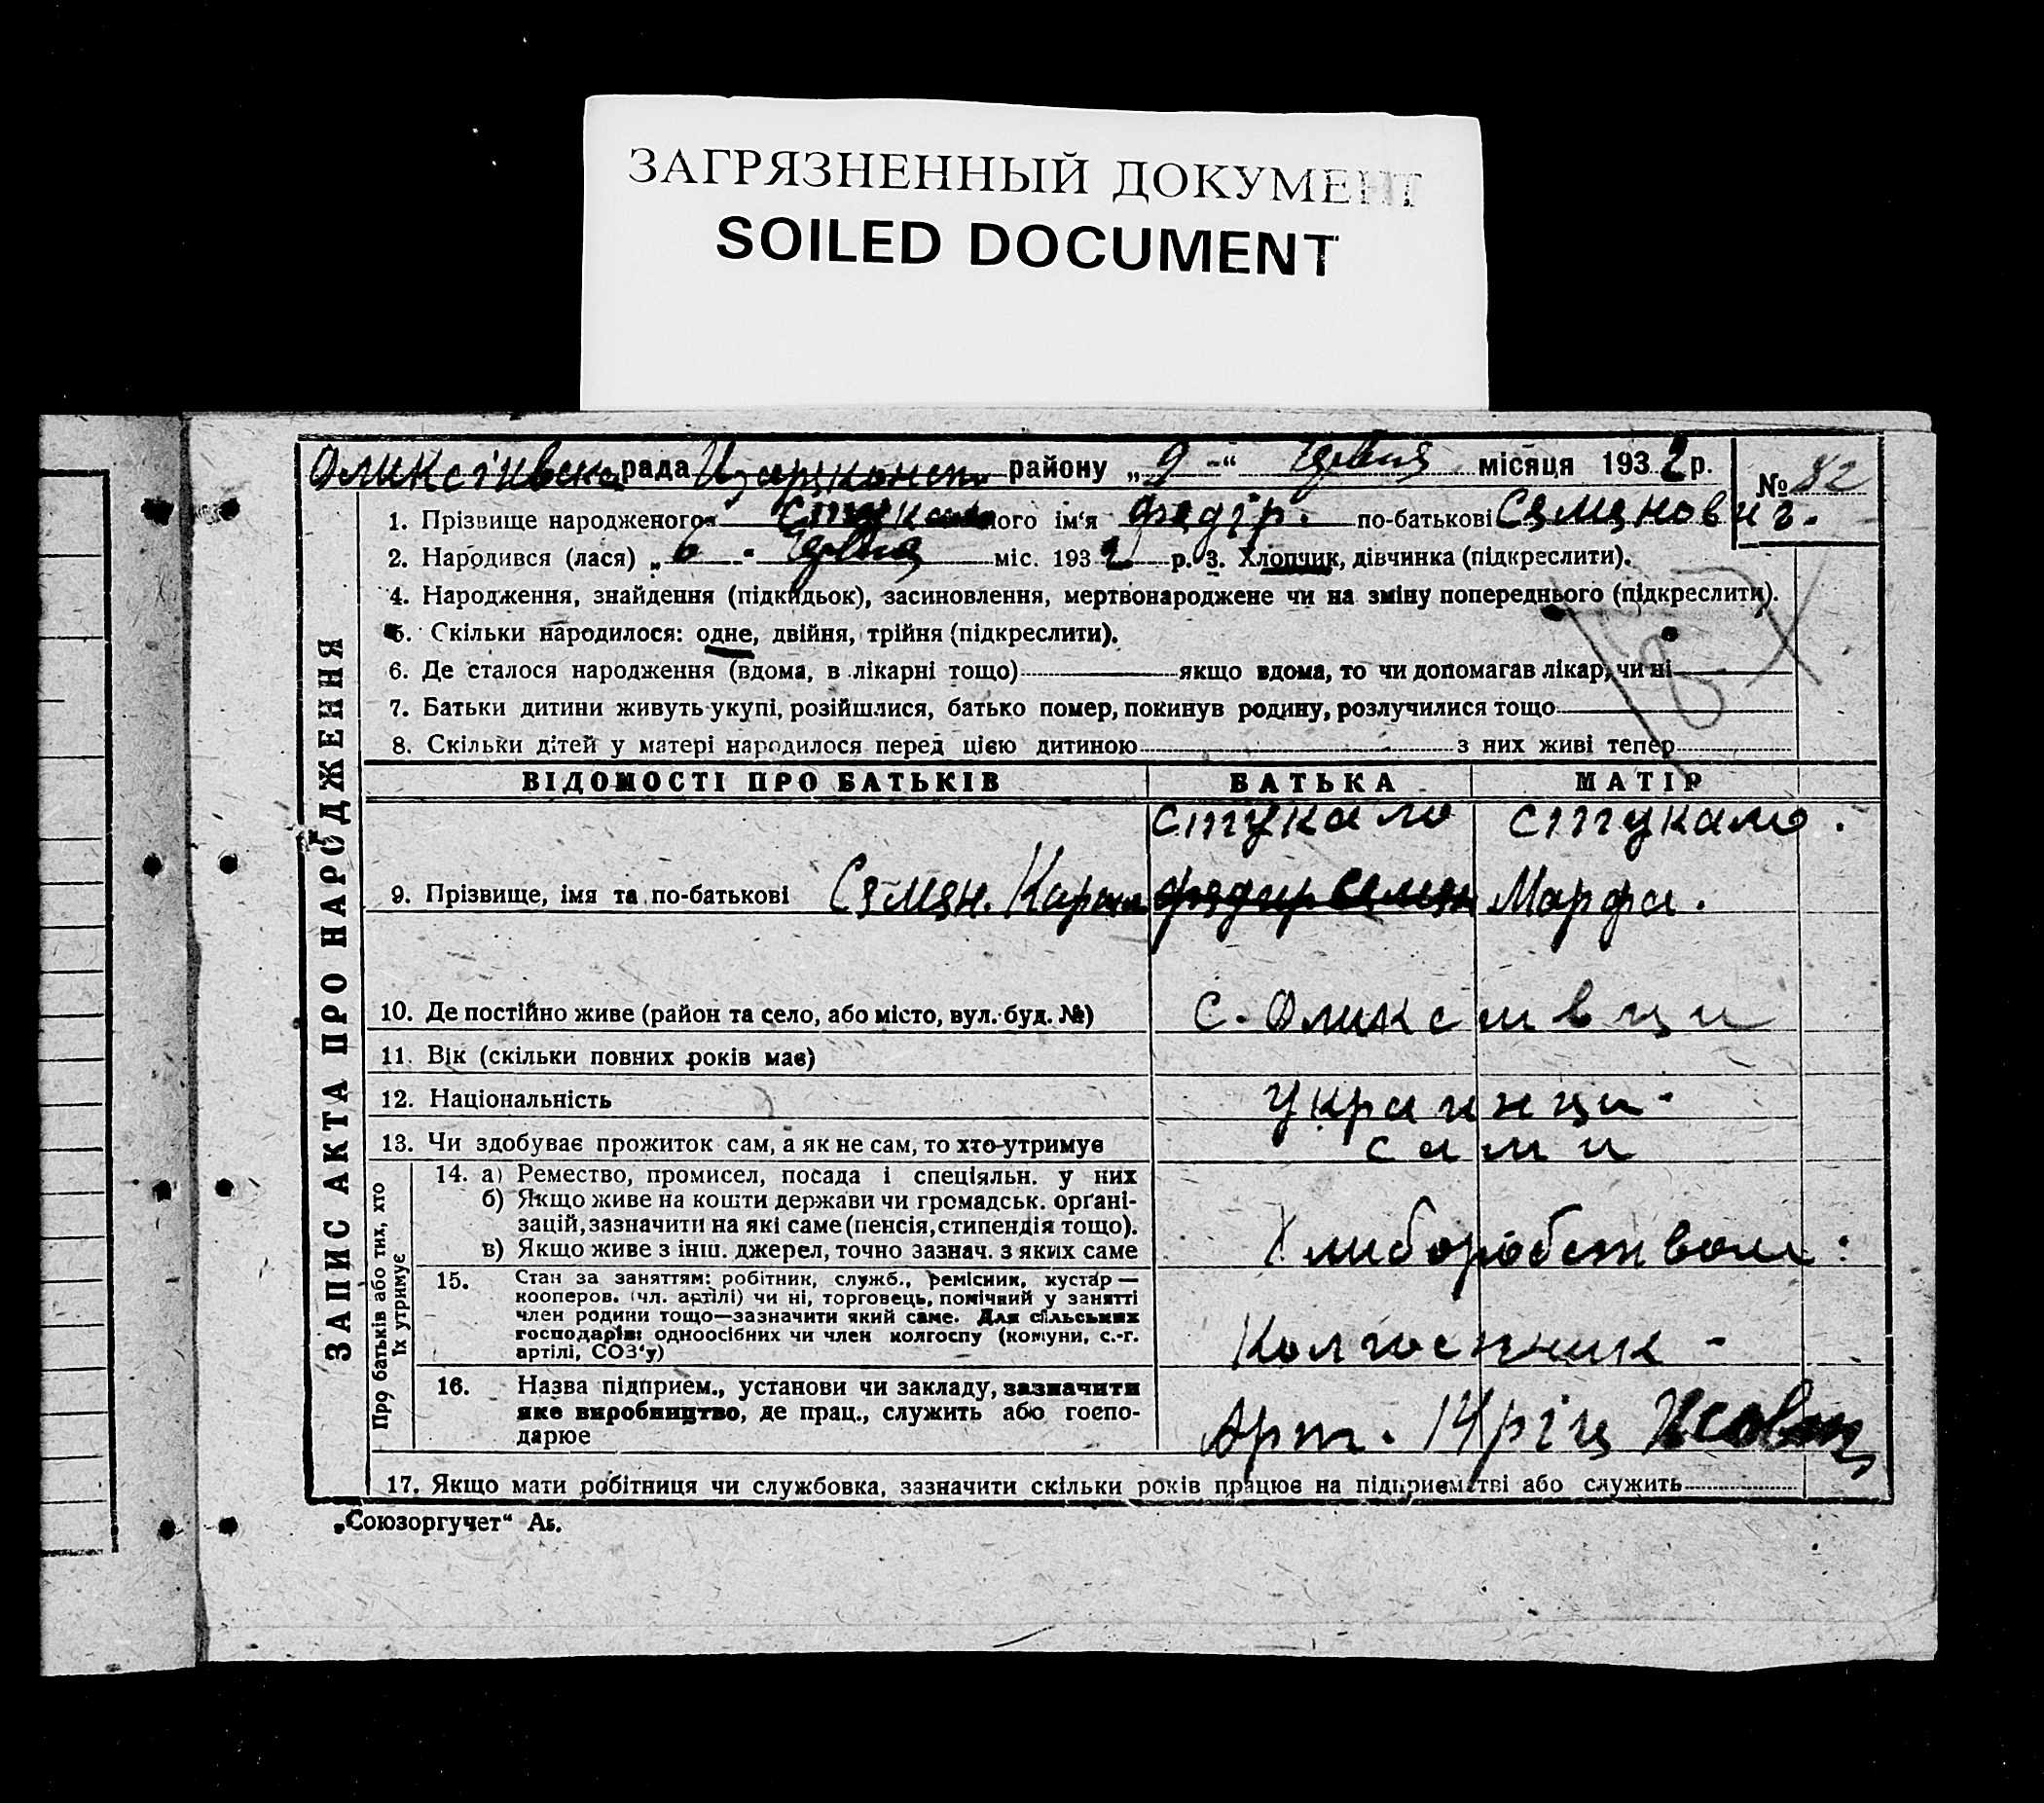 ЗАГРЯЗНЕННЫЙ ДОКУМЕНТ
SOILED DOCUMENT
рада району „ 9 -“ місяця 1932 р.
№ 82
1. Прізвище народженого його ім'я Федір. по-батькові Семенович.
2. Народився (лася) „ 6 - міс. 1932 р. 3. Хлопчик, дівчинка (підкреслити).
4. Народження, знайдення (підкидьок), засиновлення, мертвонароджене чи на зміну попереднього (підкреслити).
5. Скільки народилося: одне, двійня, трійня (підкреслити).
6. Де сталося народження (вдома, в лікарні тощо) якщо вдома, то чи допомагав лікар, чи ні
7. Батьки дитини живуть укупі, розійшлися, батько помер, покинув родину, розлучилися тощо
8. Скільки дітей у матері народилося перед цією дитиною з них живі тепер
ЗАПИС АКТА ПРО НАРОДЖЕННЯ
ВІДОМОСТІ ПРО БАТЬКІВ БАТЬКА МАТІР
Стукало Стукало.
9. Прізвище, імя та по-батькові Семен. Марфа.
10. Де постійно живе (район та село, або місто, вул. буд. №) с.
11. Вік (скільки повних років має)
12. Національність Украинци.
13. Чи здобуває прожиток сам, а як не сам, то хто утримує сами
Про батьків або тих, хто їх утримує
14. а) Ремество, промисел, посада і спеціяльн. у них
б) Якщо живе на кошти держави чи громадськ. орґані-
зацій, зазначити на які саме (пенсія, стипендія тощо).
в) Якщо живе з інш. джерел, точно зазнач. з яких саме
Хлиборобством.
15. Стан за заняттям: робітник, служб., ремісник, кустар —
кооперов. (чл. артілі) чи ні, торговець, помічний у занятті
член родини тощо—зазначити який саме. Для сільських
господарів: одноосібних чи член колгоспу (комуни, с.-г.
артілі, СОЗ'у)
Колгоспник -
16. Назва підприєм., установи чи закладу, зазначити
яке виробництво, де прац., служить або госпо-
дарює
Арт.
17. Якщо мати робітниця чи службовка, зазначити скільки років працює на підприємстві або служить
„Союзоргучет“ Аб.